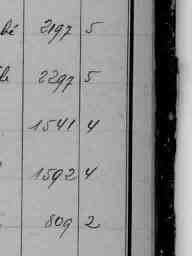 bé 2197 5
le 2297 5
1541 4
1592 4
809 2